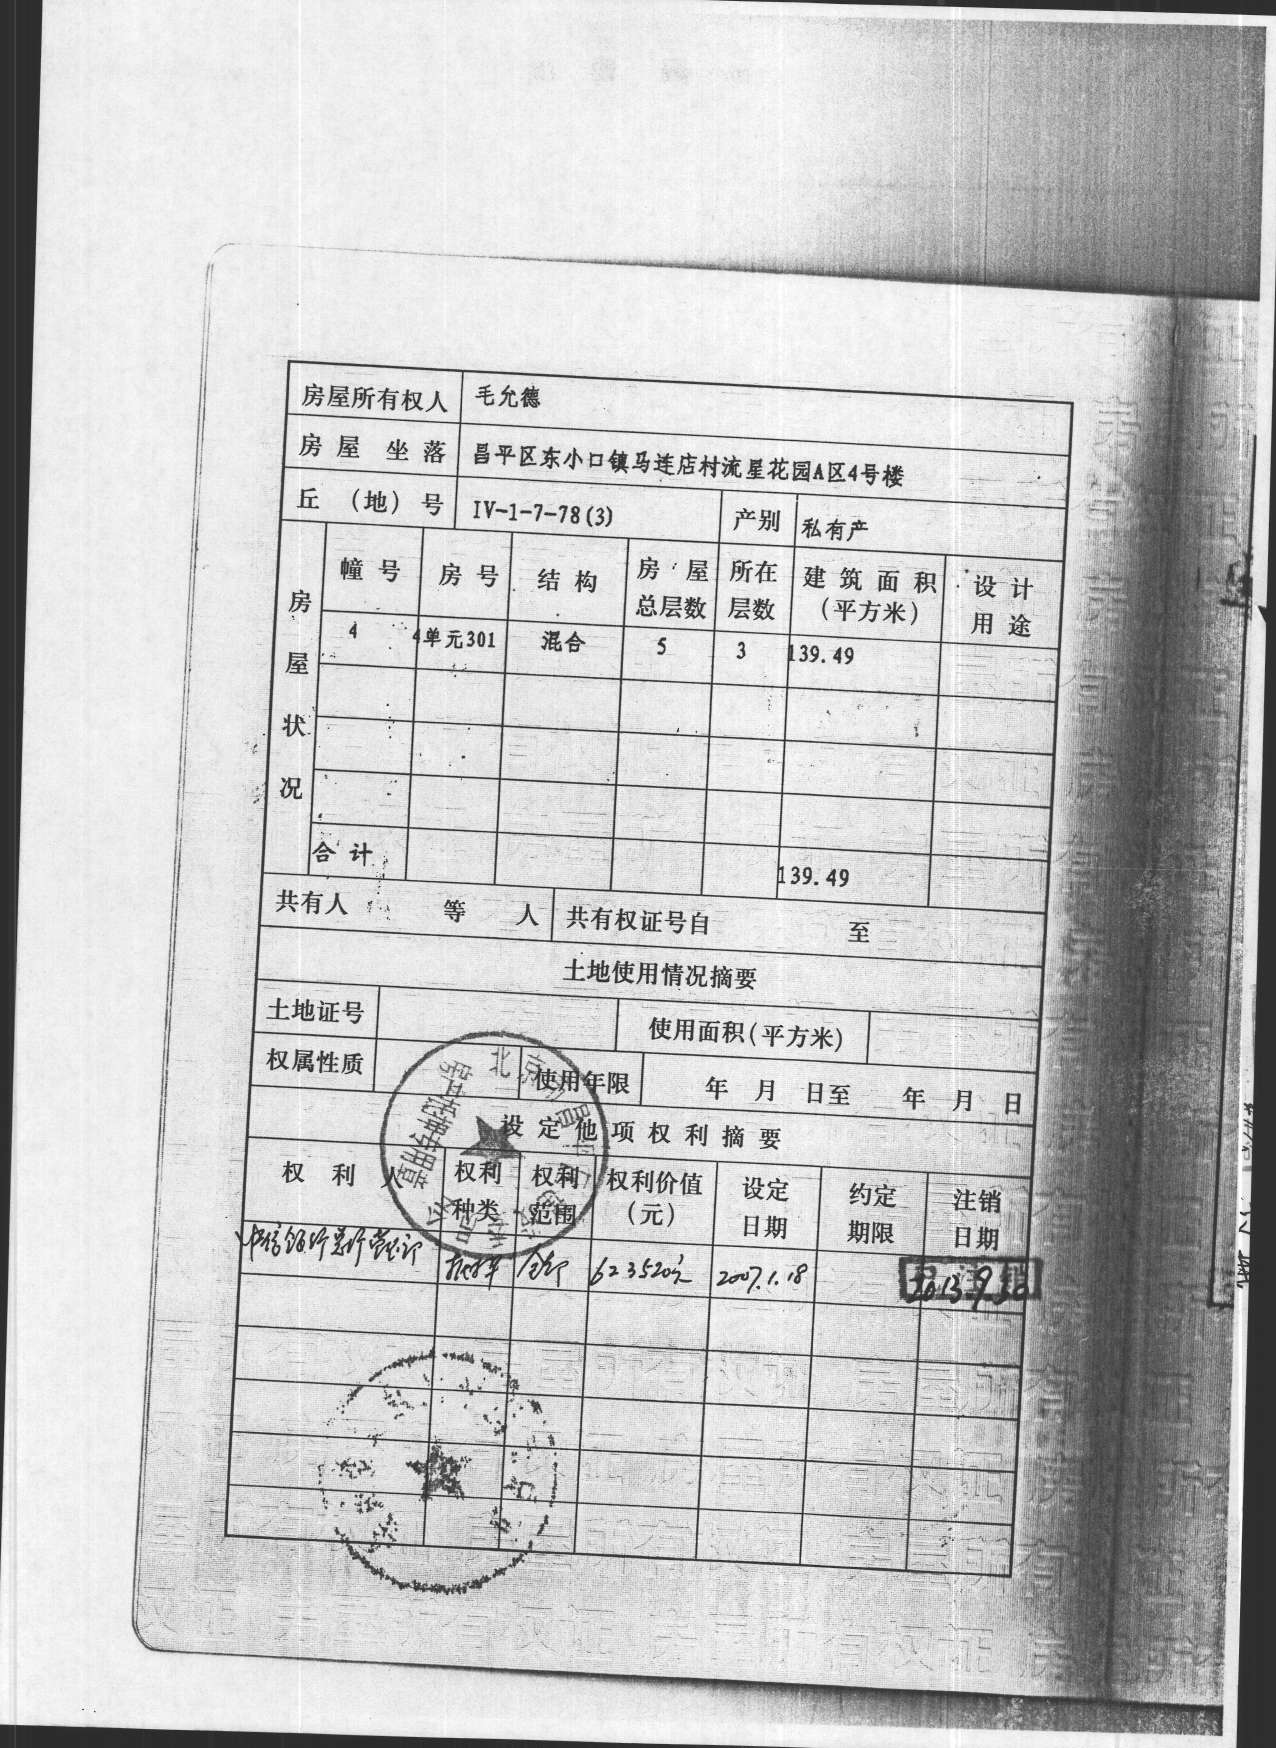 房屋所有权人 毛允德
房屋坐落 昌平区东小口镇马连店村流星花园A区4号楼
丘（地）号 IV-1-7-78(3) 产别 私有产
房屋状况
幢号 房号 结构 房屋总层数 所在层数 建筑面积（平方米） 设计用途
4 4单元301 混合 5 3 139.49
合计 139.49
共有人 等 人 共有权证号自 至
土地使用情况摘要
土地证号 使用面积(平方米)
权属性质 使用年限 年 月 日至 年 月 日
设定他项权利摘要
权利人 权利种类 权利范围 权利价值（元） 设定日期 约定期限 注销日期
中信银行 623520元 2007.1.18 2013.9.30